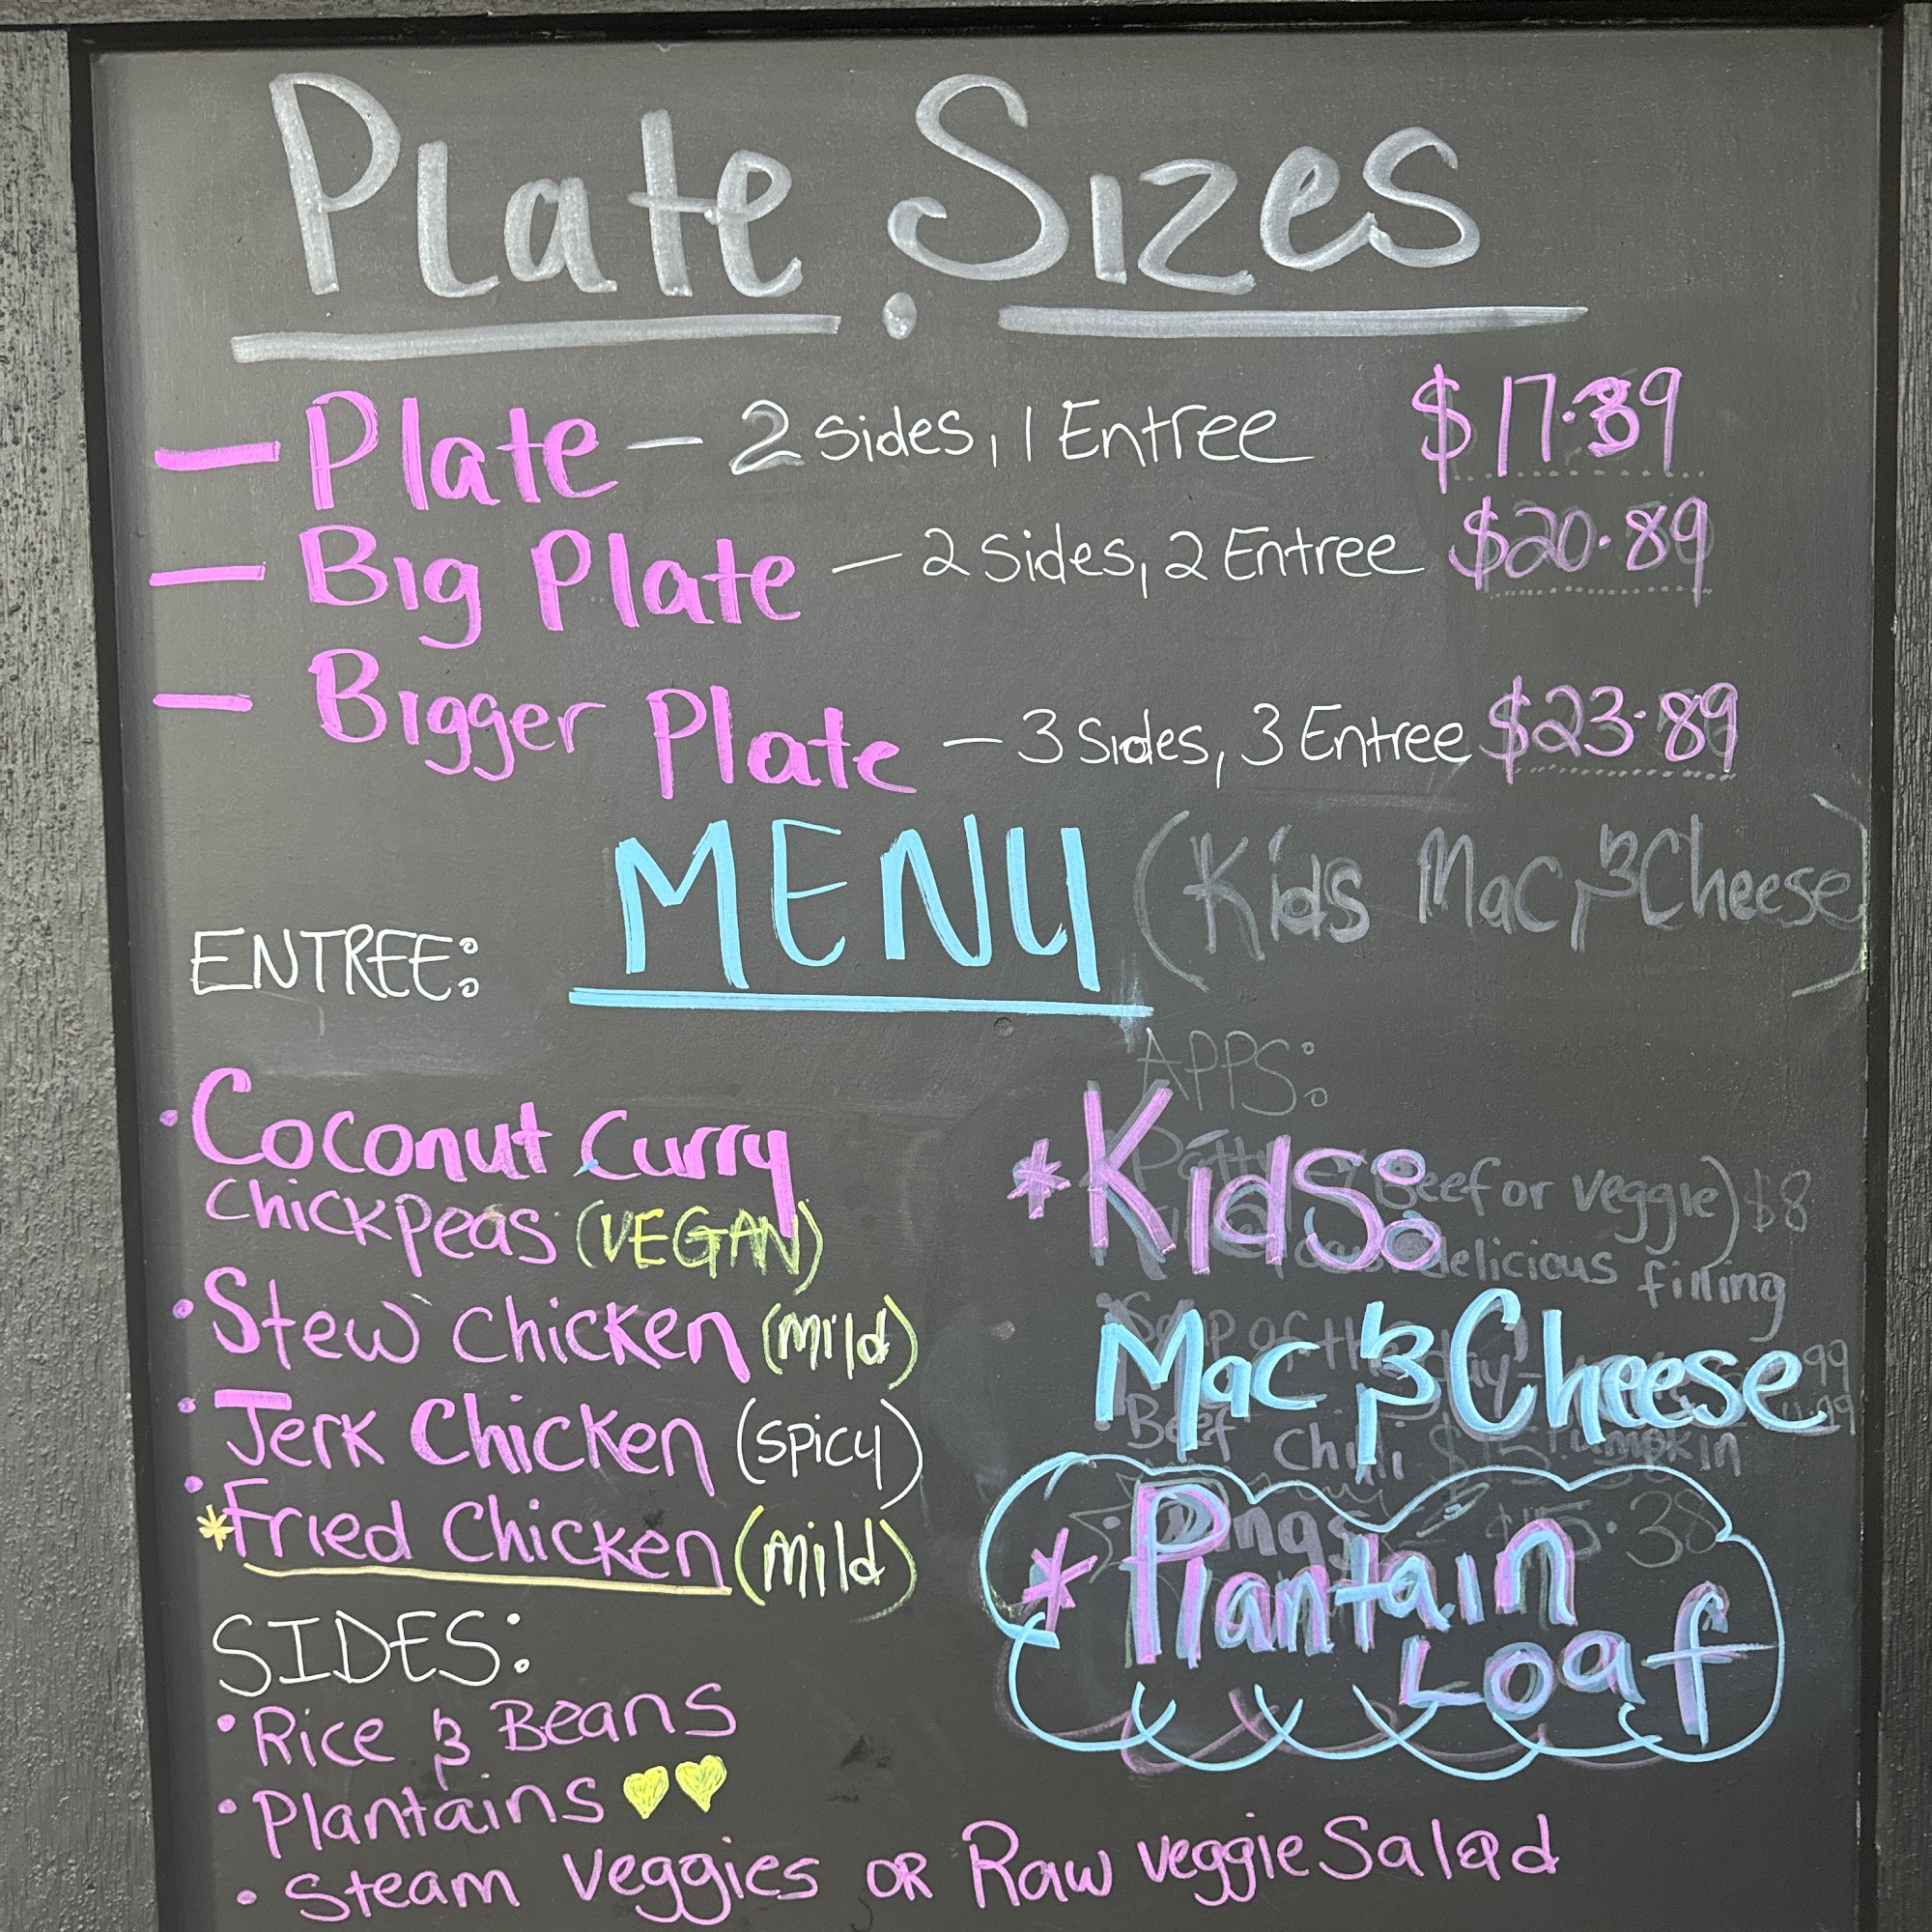 Plate Sizes
— Plate — 2 Sides, 1 Entree $17.39
— Big Plate — 2 Sides, 2 Entree $20.89
— Bigger Plate — 3 Sides, 3 Entree $23.89
MENU (Kids Mac & Cheese)
ENTREE:
APPS:
• Coconut Curry
Chickpeas (VEGAN)
• Stew Chicken (mild)
• Jerk Chicken (spicy)
• *Fried Chicken (mild)
*Kids:
(Beef or veggie) $8
delicious filling
Mac & Cheese
Beef Chili
Pumpkin
* Plantain
Loaf
SIDES:
• Rice & Beans
• Plantains 💛💛
• Steam Veggies OR Raw veggie Salad